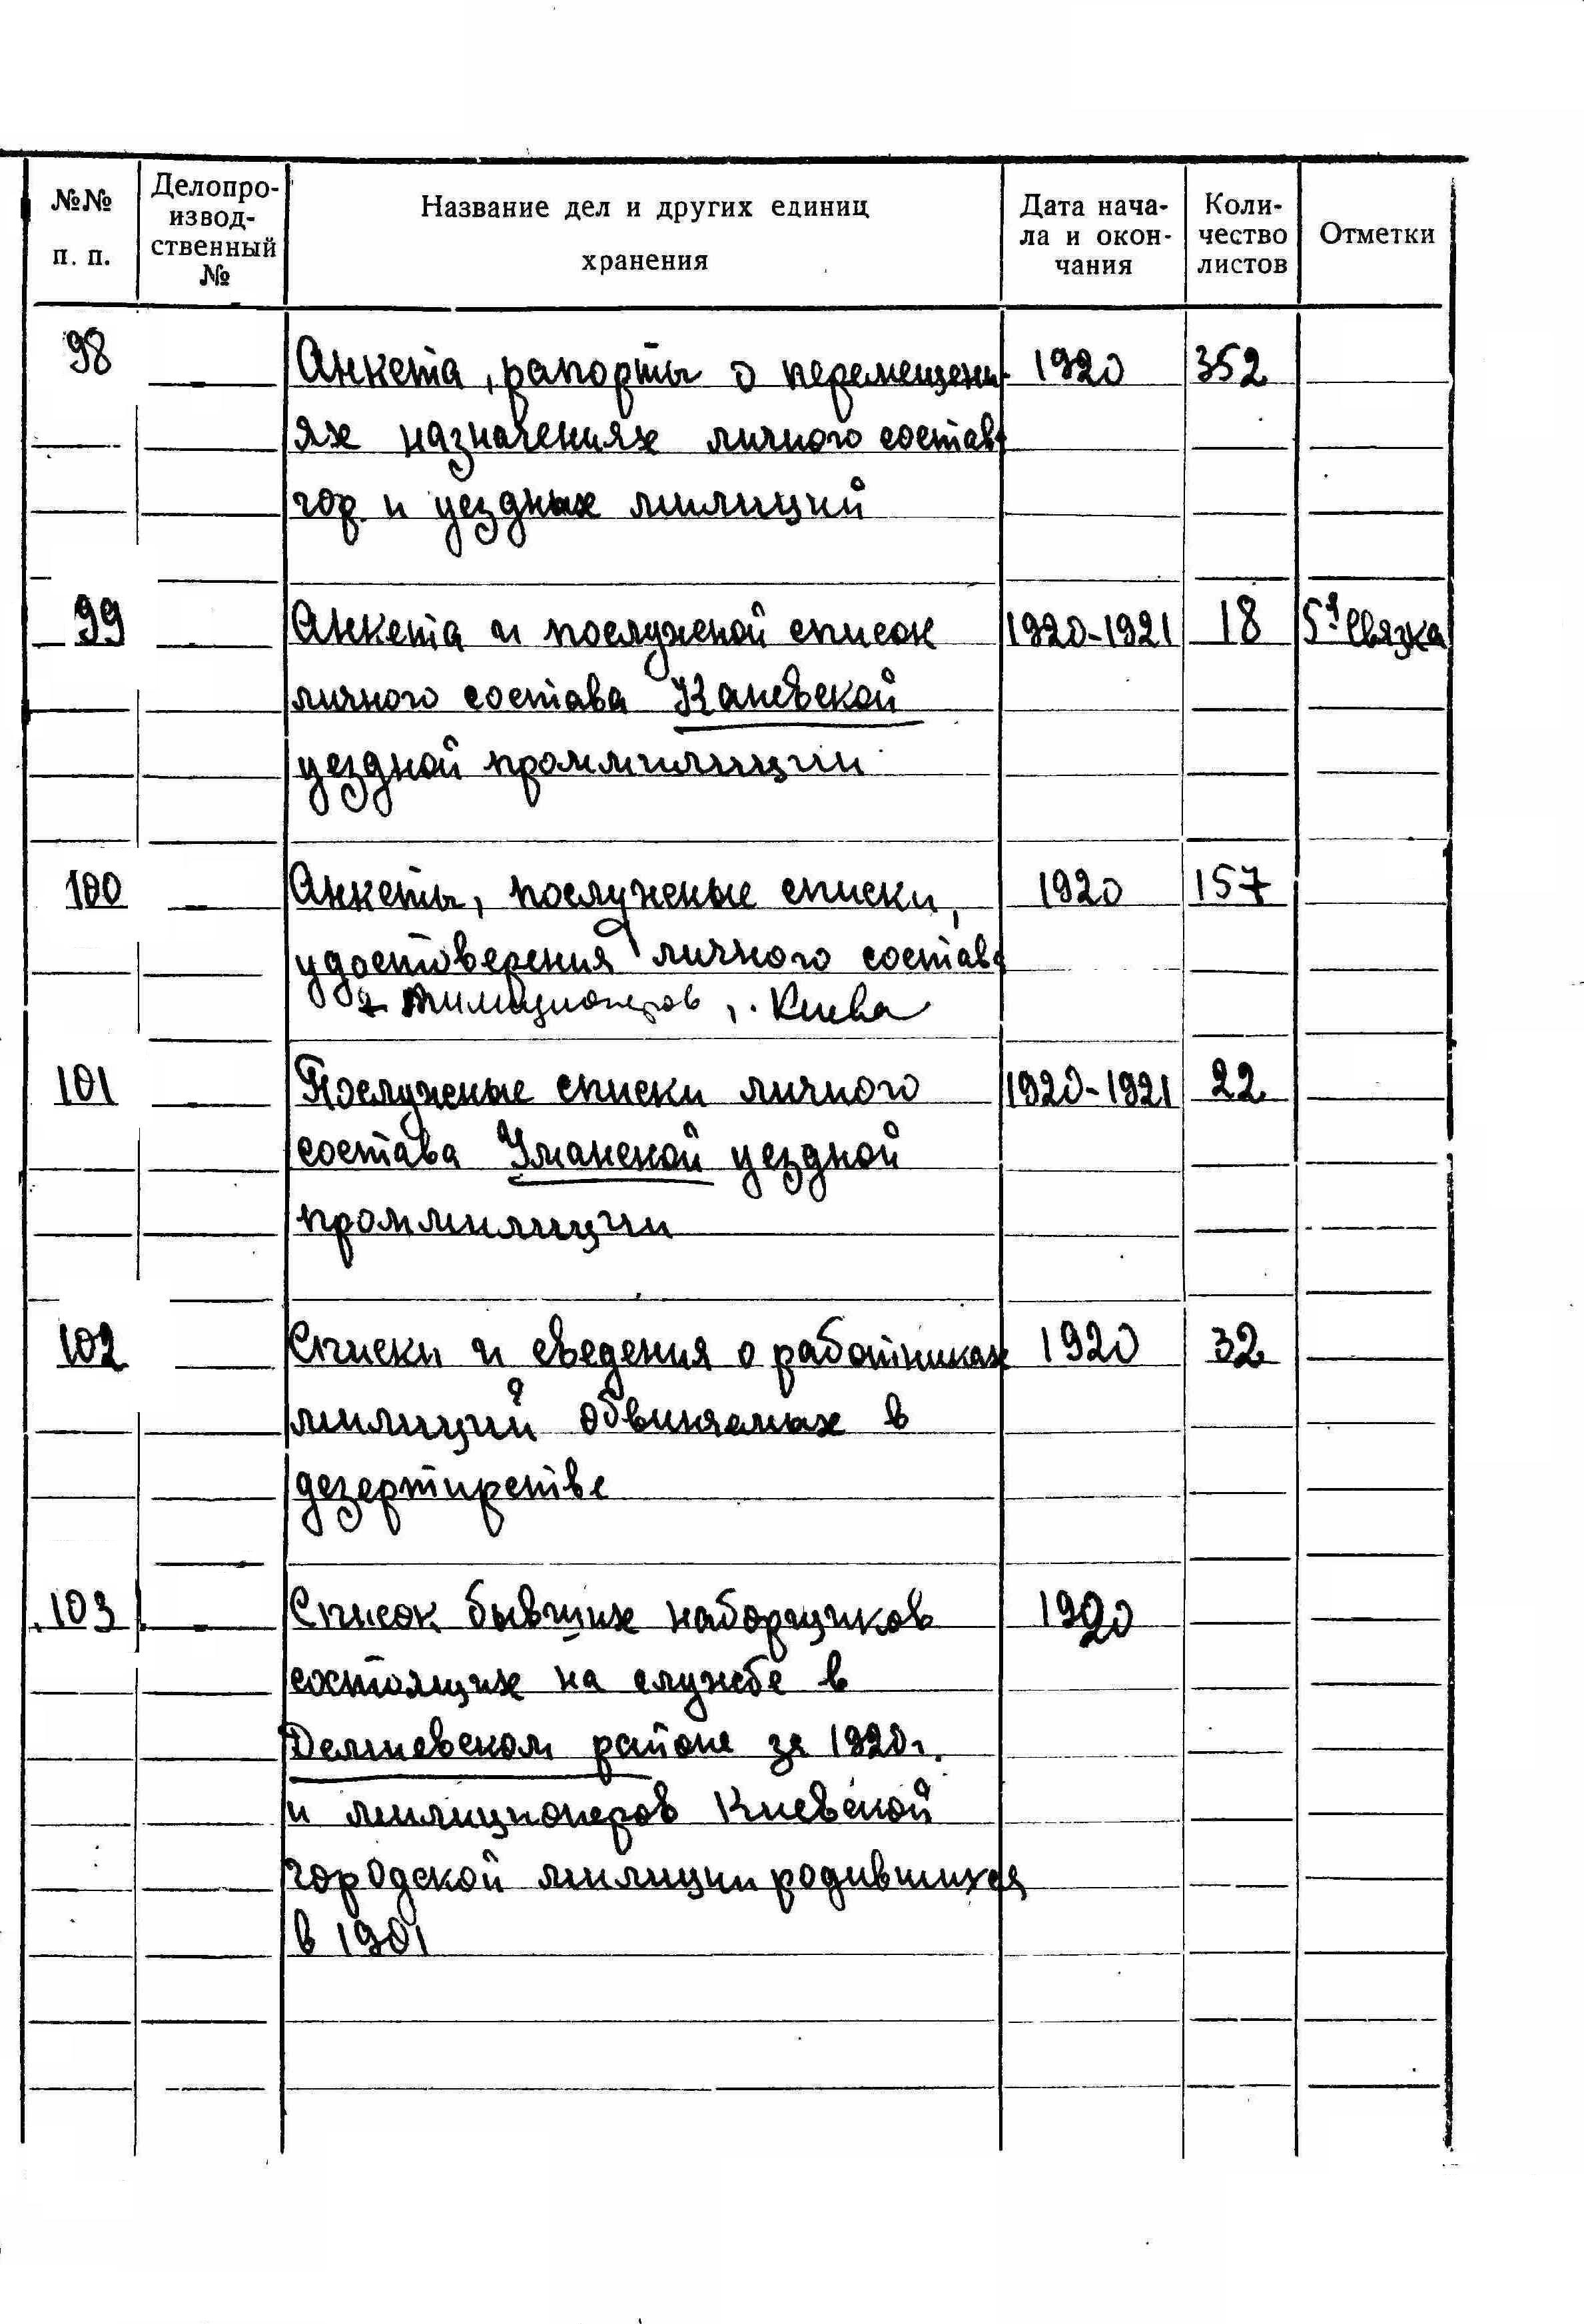 №№ п. п.
Делопро-
извод-
ственный
№
Название дел и других единиц
хранения
Дата нача-
ла и окон-
чания
Коли-
чество
листов
Отметки
98 — Анкета, рапорты о перемещени- 1920 352
ях назначениях личного состава
гор. и уездных милиций
99 — Анкета и послуженой список 1920-1921 18 5я связка
личного состава Каневской
уездной проммилиции
100 — Анкеты, послуженые списки, 1920 157
удостоверения личного состава
милиционеров г. Киева
101 — Послуженые списки личного 1920-1921 22
состава Уманской уездной
проммилиции
102 — Списки и сведения о работниках 1920 32
милиций обвиняемых в
дезертирстве
103 — Список бывших наборщиков 1920
состоящих на службе в
районе за 1920г.
и милиционеров Киевской
городской милиции родившихся
в 1901